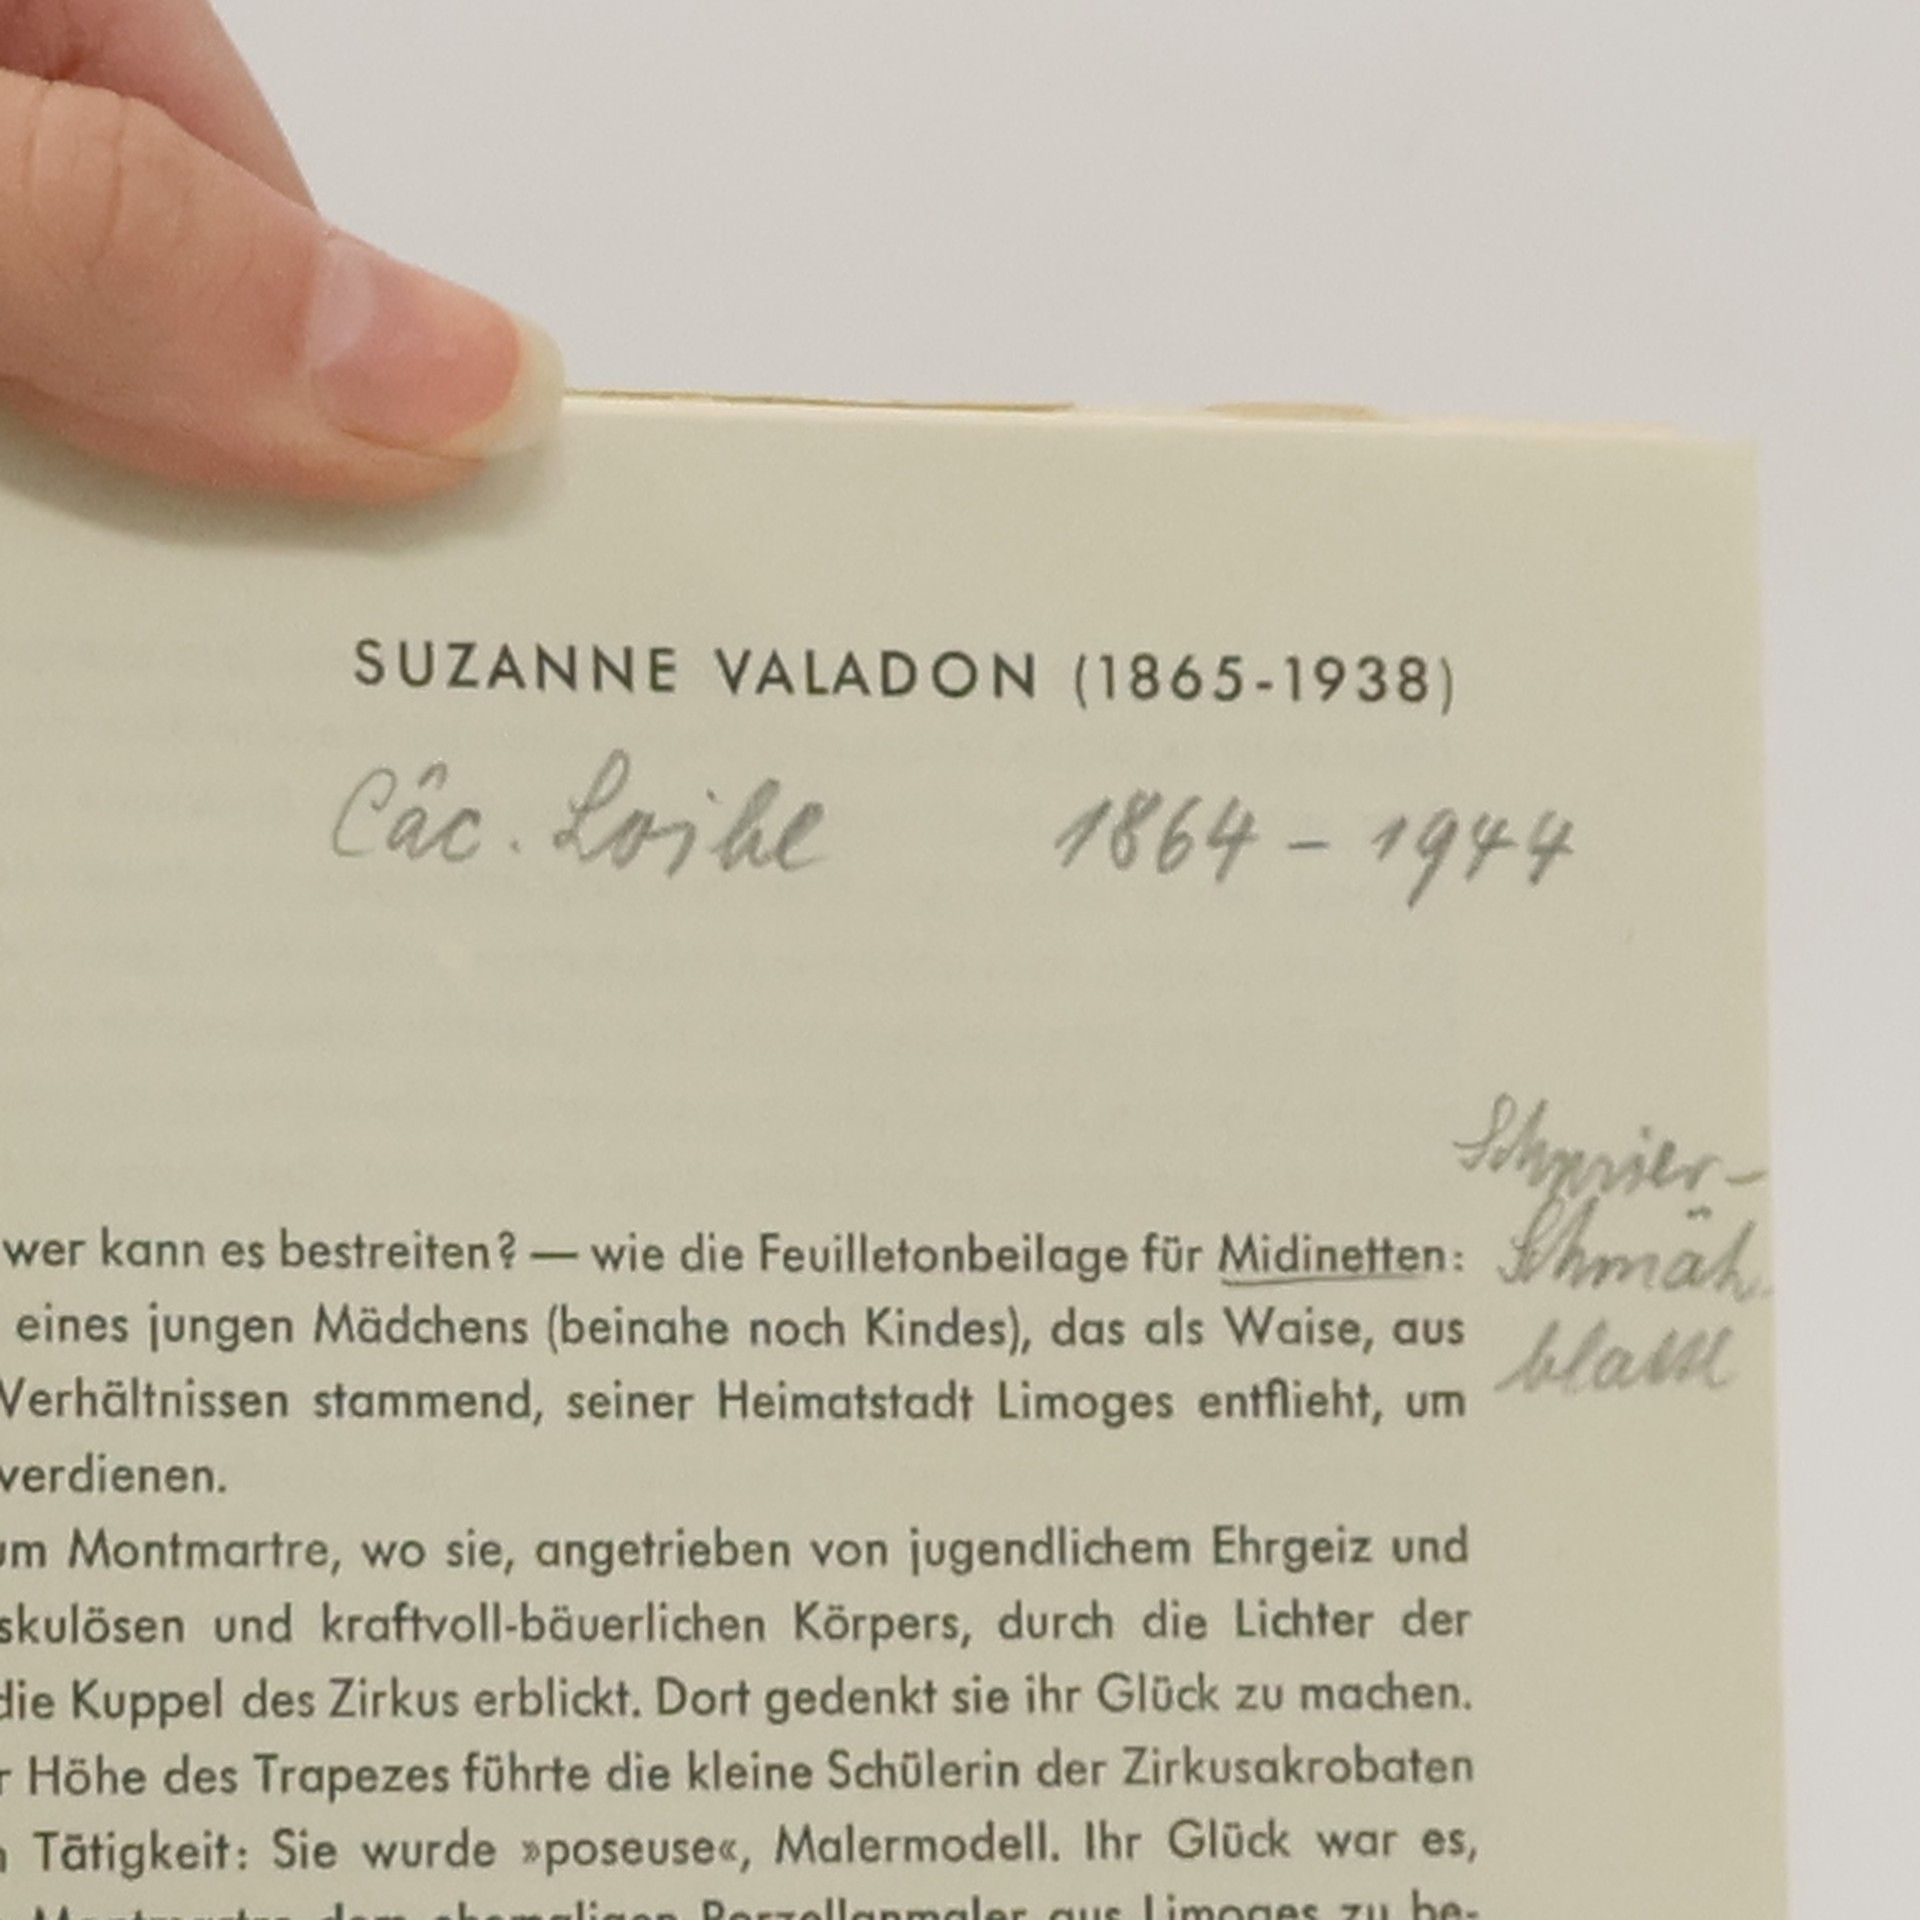 SUZANNE VALADON (1865-1938)
Câc. Loibl 1864 – 1944
Schmier-
Schmäh-
blattl
wer kann es bestreiten? — wie die Feuilletonbeilage für Midinetten:
eines jungen Mädchens (beinahe noch Kindes), das als Waise, aus
Verhältnissen stammend, seiner Heimatstadt Limoges entflieht, um
verdienen.
um Montmartre, wo sie, angetrieben von jugendlichem Ehrgeiz und
skulösen und kraftvoll-bäuerlichen Körpers, durch die Lichter der
die Kuppel des Zirkus erblickt. Dort gedenkt sie ihr Glück zu machen.
r Höhe des Trapezes führte die kleine Schülerin der Zirkusakrobaten
n Tätigkeit: Sie wurde »poseuse«, Malermodell. Ihr Glück war es,
Montmartre dem ehemaligen Porzellanmaler aus Limoges zu be-